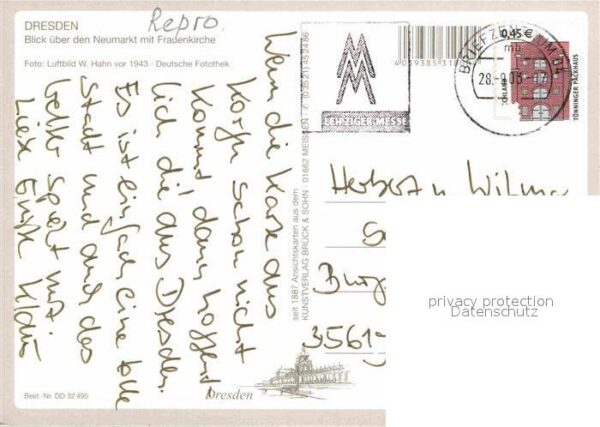 Repro.
DRESDEN
Blick über den Neumarkt mit Fradenkirche
Foto: Luftbild W. Hahn vor 1943 · Deutsche Fotothek
Wenn die Karte aus
Korfu schon nicht
kommt, dann hoffent-
lich die aus Dresden.
Es ist einfach eine tolle
Stadt und das
Wetter spielt mit.
Liebe Grüße Klaus
seit 1887 Ansichtskarten aus dem
KUNSTVERLAG BRÜCK & SOHN · 01662 MEISSEN
LEIPZIGER MESSE
BRIEFZENTRUM 04
mb
0,45 €
TÖNNINGER PACKHAUS
Herbert u. Wilma
Burg
35619
privacy protection
Datenschutz
Dresden
Best.-Nr. DD 32 495